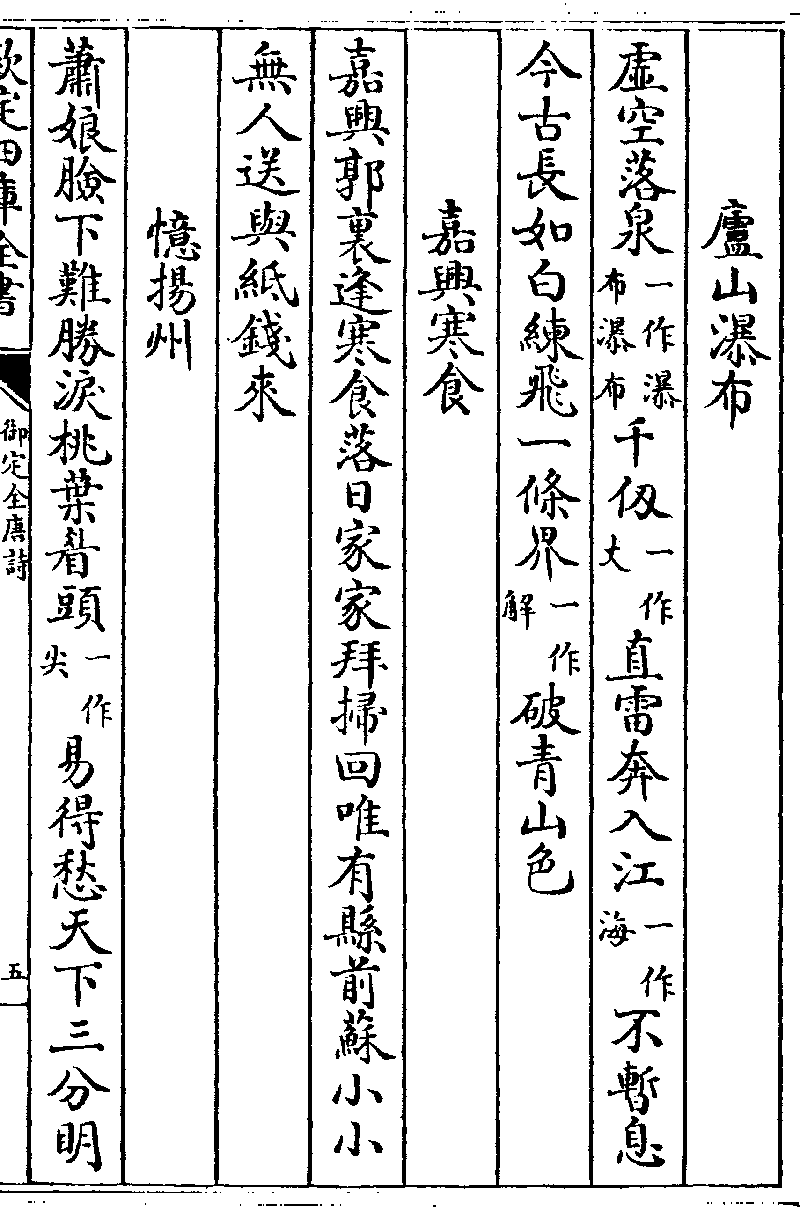 廬山瀑布
虛空落泉一作瀑布瀑布千仭一作丈直雷奔入江一作海不暫息
今古長如白練飛一條界一作解破青山色
嘉興寒食
嘉興郭裏逢寒食落日家家拜掃回唯有縣前蘇小小
無人送與紙錢來
憶揚州
蕭娘臉下難勝淚桃葉眉頭一作尖易得愁天下三分明
欽定四庫全書
御定全唐詩
五